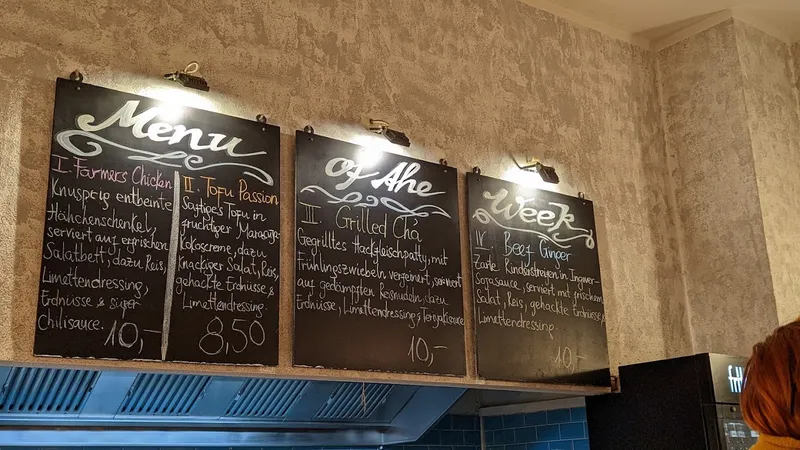 Menu
I. Farmers Chicken
Knusprig entbeinte
Hähnchenschenkel,
serviert auf erfrischen
Salatbett, dazu Reis,
Limettendressing,
Erdnüsse & süßer
Chilisauce. 10,-
II. Tofu Passion
Saftiges Tofu in
fruchtiger Maracuja-
Kokoscreme, dazu
knackiger Salat, Reis,
gehackte Erdnüsse &
Limettendressing.
8,50
of the
III Grilled Chả
Gegrilltes Hackfleischpatty, mit
Frühlingszwiebeln verfeinert, serviert
auf gedämpften Reisnudeln, dazu
Erdnüsse, Limettendressing & Teriyakisauce
10,-
Week
IV. Beef Ginger
Zarte Rindsstreifen in Ingwer-
Sojasauce, serviert mit frischem
Salat, Reis, gehackte Erdnüsse,
Limettendressing.
10,-